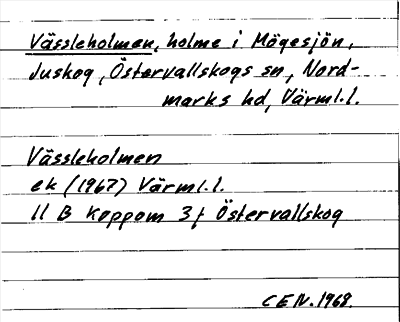 Vässleholmen, holme i Mögesjön,
Juskog, Östervallskogs sn, Nord-
marks hd, Värml.l.
Vässleholmen
ek (1967) Värml.l.
11 B Koppom 3f Östervallskog
CEN.1968.